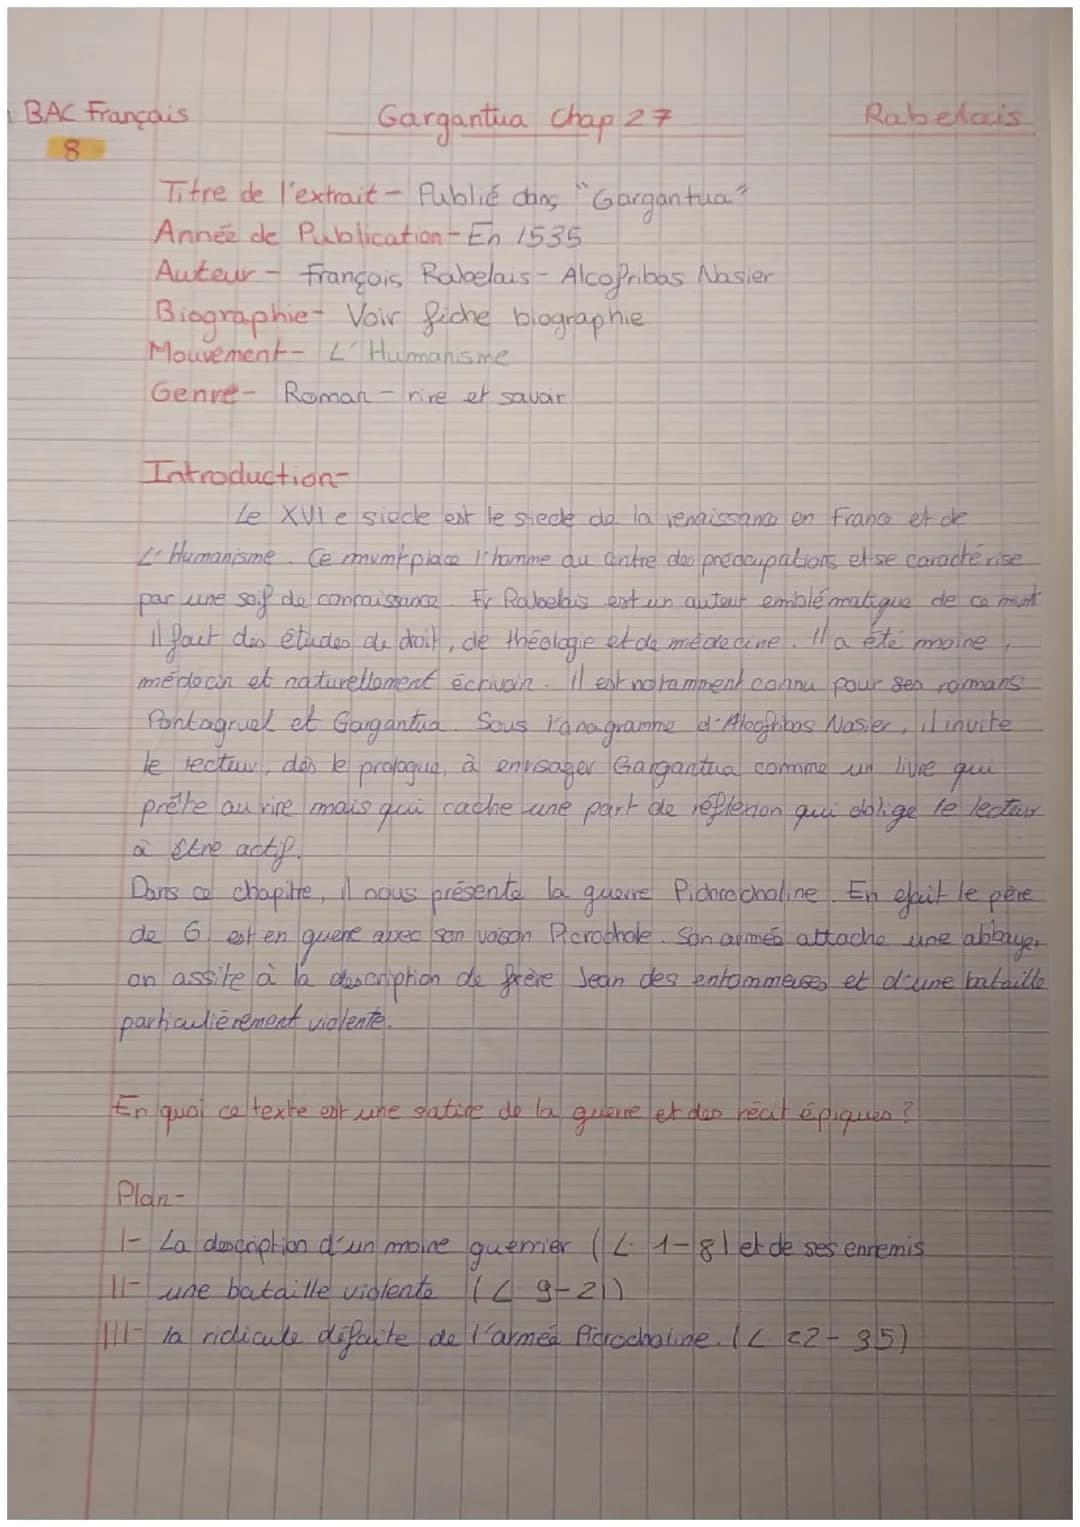 BAC Français Gargantua Chap 27 Rabelais
8
Titre de l'extrait - Publié dans "Gargantua"
Année de Publication - En 1535
Auteur - François Rabelais - Alcofribas Nasier
Biographie - Voir fiche biographie
Mouvement - L'Humanisme
Genre - Roman - rire et savoir
Introduction -
Le XVI e siecle est le siecle de la renaissance en France et de
L'Humanisme. Ce mvmt place l'homme au centre des préocupations et se caractérise
par une soif de connaissance. Fr Rabelais est un auteur emblématique de ce mvmt
il fait des études de droit, de théologie et de médecine. Il a été moine,
médecin et naturellement écrivain. Il est notamment connu pour ses romans
Pantagruel et Gargantua. Sous l'anagramme d'Alcofribas Nasier, il invite
le lecteur, dès le prologue, à envisager Gargantua comme un livre qui
prête au rire mais qui cache une part de réflexion qui oblige le lecteur
à être actif.
Dans ce chapitre, il nous présente la guerre Pichrocholine. En efait le père
de G. est en guerre avec son voisin Picrochole. Son armée attache une abbaye,
on assite à la description de frère Jean des entommeuses et d'une bataille
particulièrement violente.
En quoi ce texte est une satire de la guerre et des récit épiques ?
Plan -
I- La description d'un moine guerrier (L 1-8) et de ses ennemis
II- une bataille violente (L 9-21)
III- la ridicule défaite de l'armée Picrocholine. (L 22-35)